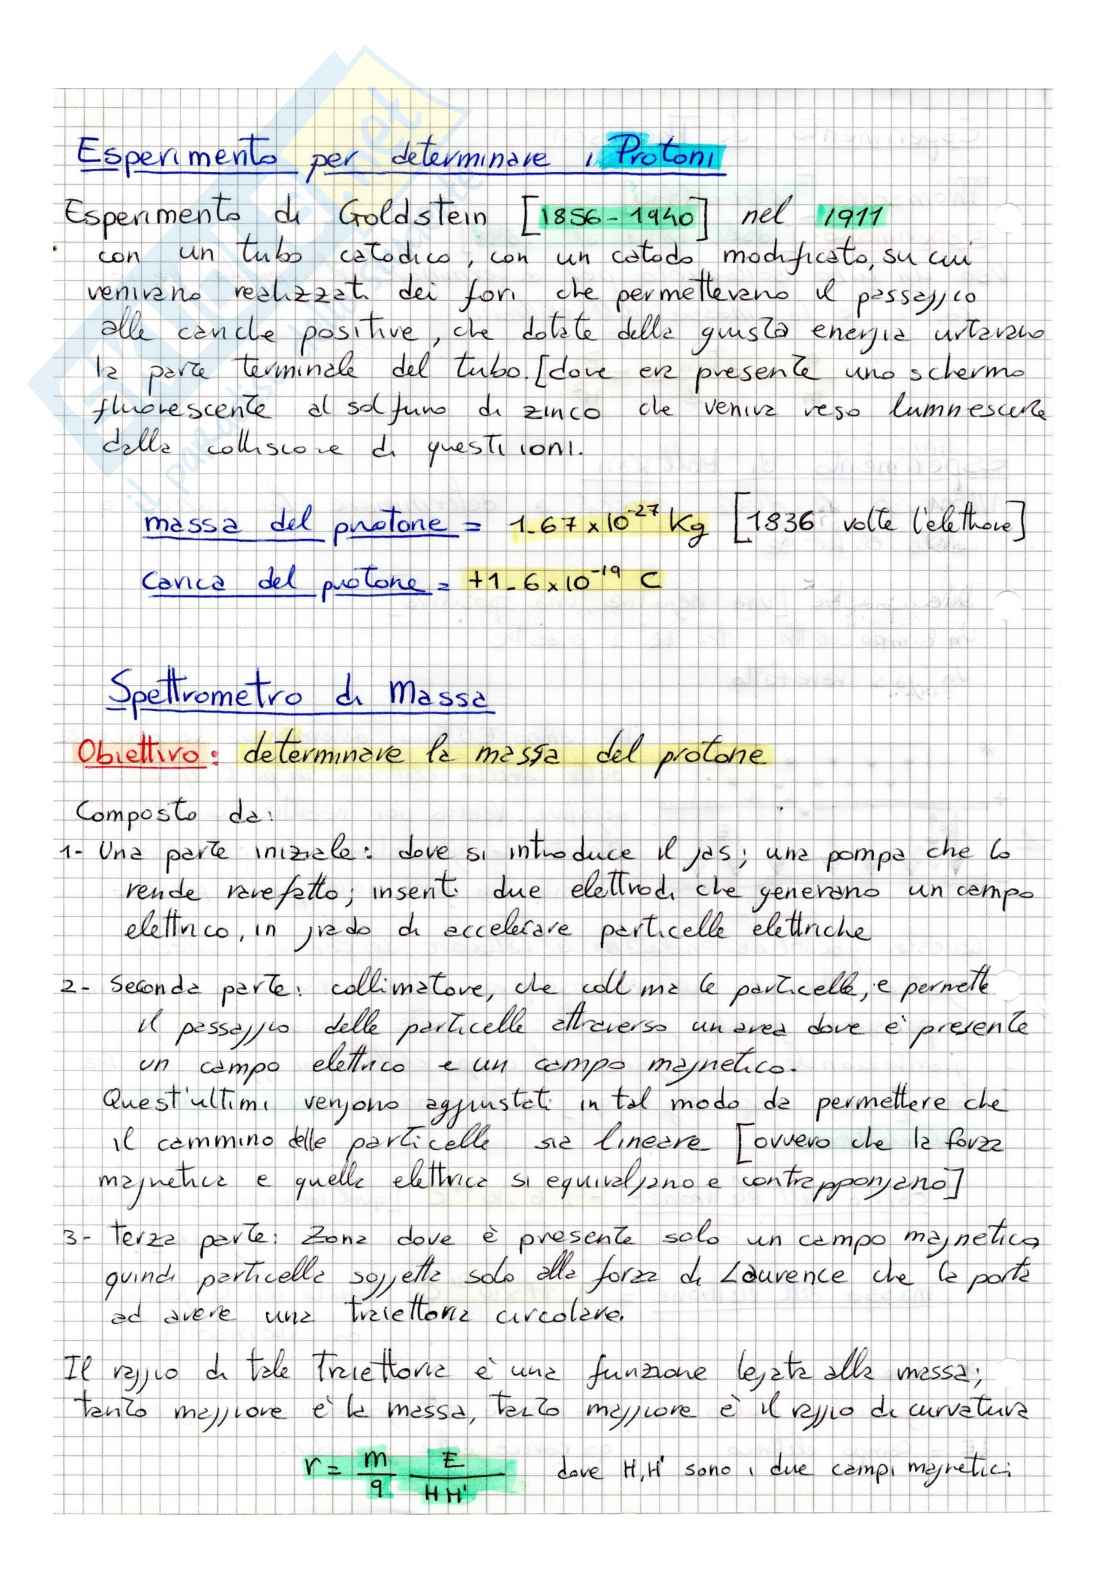 Esperimento per determinare i Protoni
Esperimento di Goldstein [1856-1940] nel 1911
con un tubo catodico, con un catodo modificato, su cui
venivano realizzati dei fori che permettevano il passaggio
alle cariche positive, che dotate della giusta energia urtavano
la parte terminale del tubo. [dove era presente uno schermo
fluorescente al solfuro di zinco che veniva reso luminescente
dalla collisione di questi ioni.
massa del protone = 1.67 x 10⁻²⁷ Kg [1836 volte l'elettrone]
carica del protone = +1.6 x 10⁻¹⁹ C
Spettrometro di Massa
Obiettivo: determinare la massa del protone
Composto da:
1- Una parte iniziale: dove si introduce il gas; una pompa che lo
rende rarefatto; inseriti due elettrodi che generano un campo
elettrico, in grado di accelerare particelle elettriche
2- Seconda parte: collimatore, che collima le particelle, e permette
il passaggio delle particelle attraverso un area dove è presente
un campo elettrico e un campo magnetico.
Quest'ultimi vengono aggiustati in tal modo da permettere che
il cammino delle particelle sia lineare [ovvero che la forza
magnetica e quella elettrica si equivalgano e contrappongano]
3- Terza parte: Zona dove è presente solo un campo magnetico,
quindi particella soggetta solo alla forza di Laurence che la porta
ad avere una traiettoria circolare.
Il raggio di tale traiettoria è una funzione legata alla massa;
tanto maggiore è la massa, tanto maggiore è il raggio di curvatura
r = m/q E/HH' dove H,H' sono i due campi magnetici